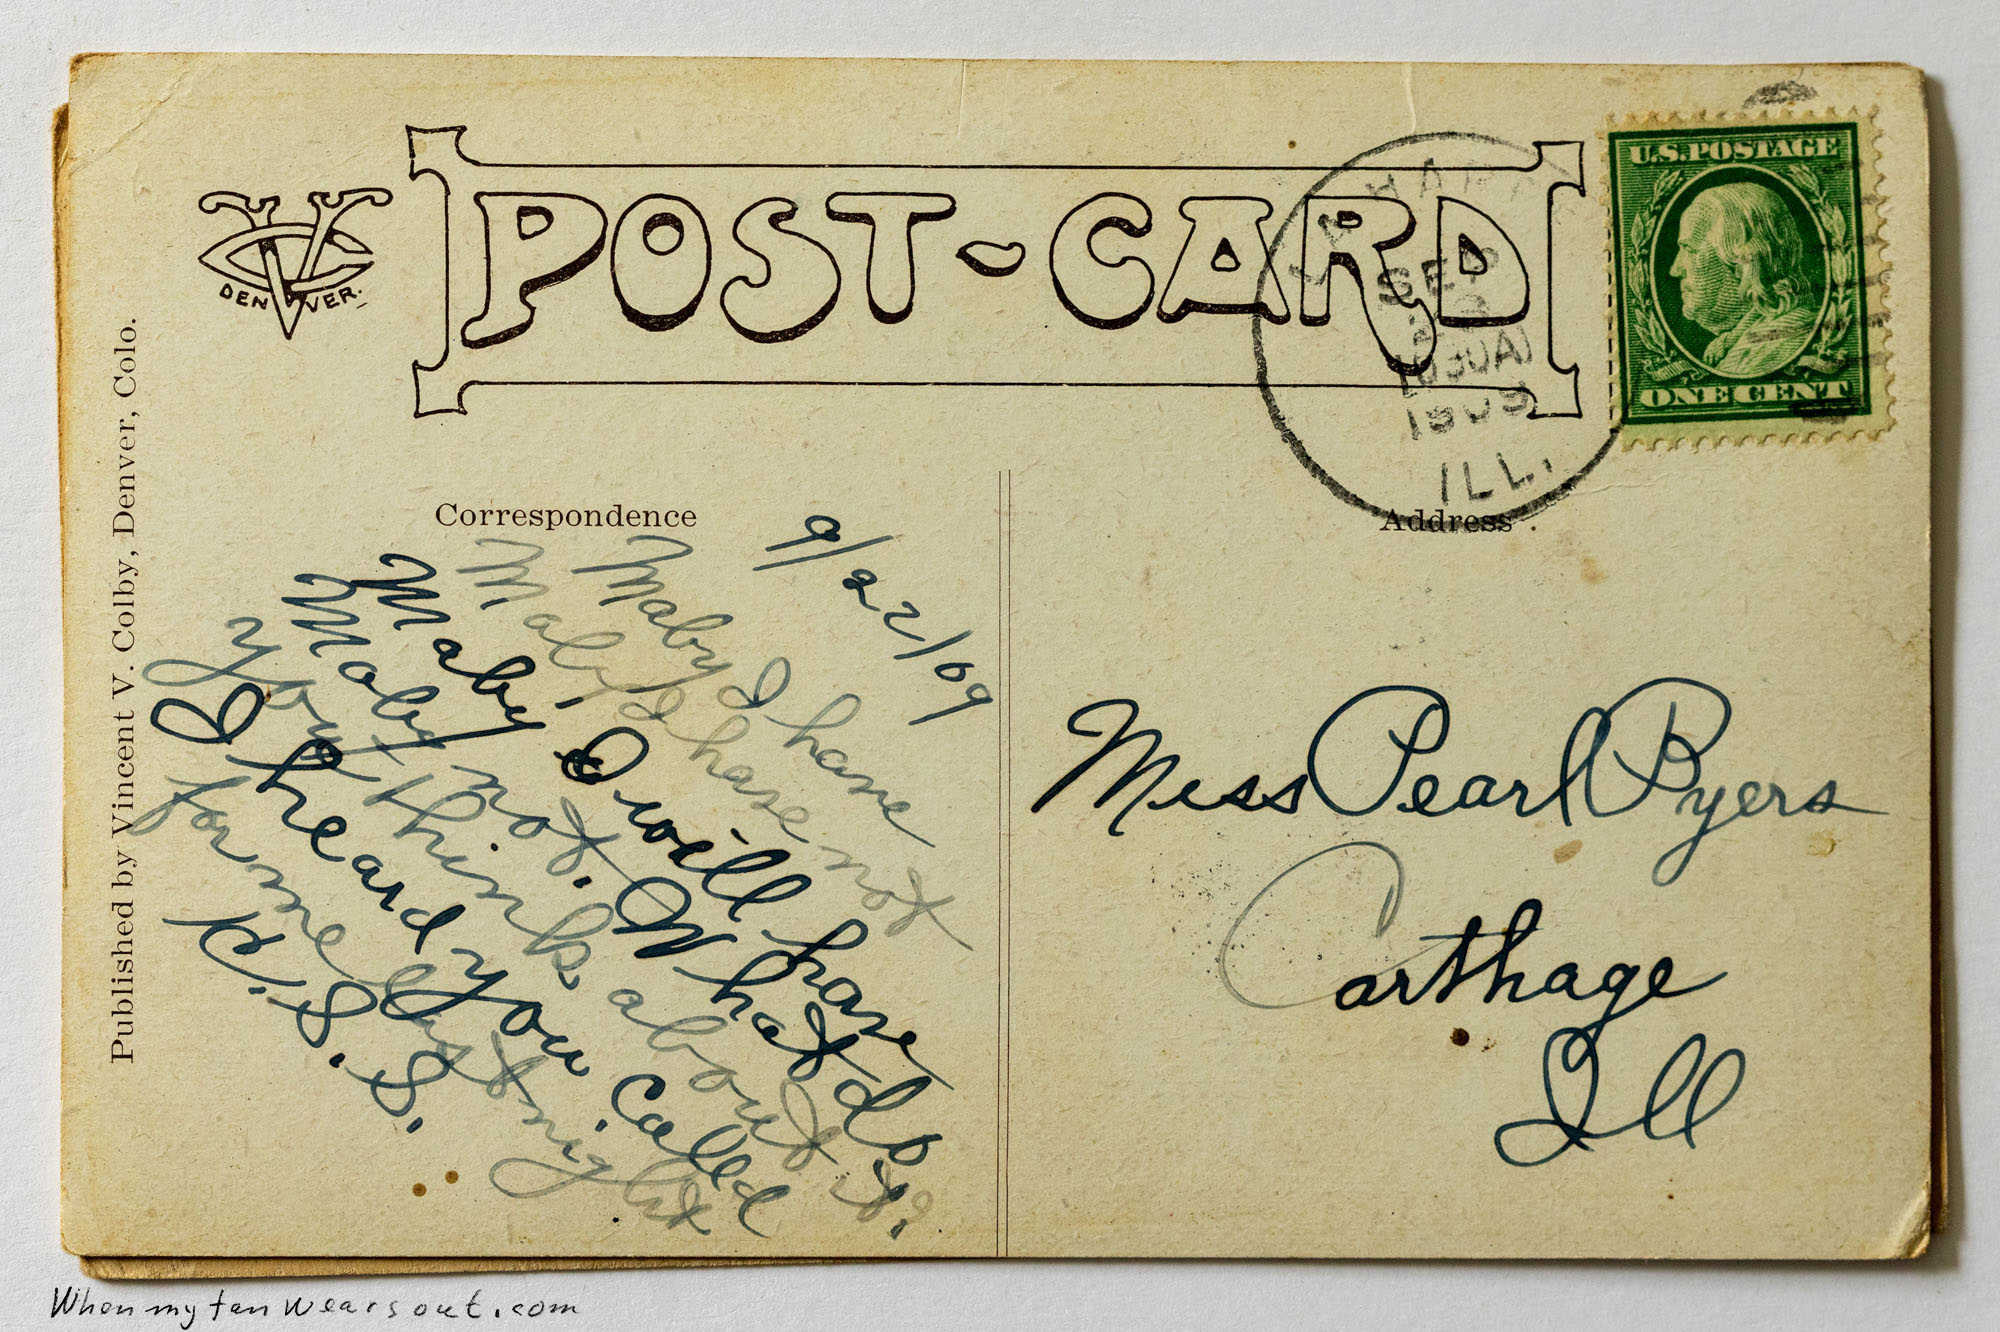 DENVER.
POST-CARD
U.S. POSTAGE
ONE CENT
SEP
1030A
1909
ILL.
Published by Vincent V. Colby, Denver, Colo.
Correspondence
Address
9/22/09
Maby I have
Maby I have not
Maby I will have
Maby not. What do
you think about it?
I heard you called
for me last night
P.S.S.
Miss Pearl Byers
Carthage
Ill
When my tan wears out.com